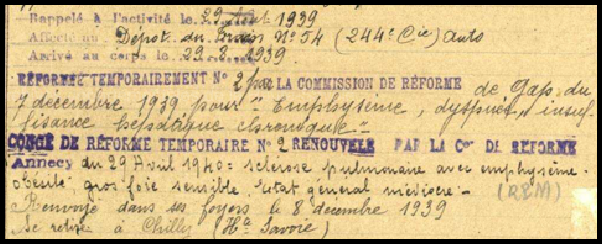 Rappelé à l'activité le 29 Août 1939
Affecté au Dépôt du Train N° 54 (244e Cie) Auto
Arrivé au corps le 29.8.1939
RÉFORMÉ TEMPORAIREMENT N° 2 par LA COMMISSION DE RÉFORME de Gap du
7 décembre 1939 pour "Emphysème, dyspnée, insuf
fisance hépatique chronique"
CONGÉ DE RÉFORME TEMPORAIRE N° 2 RENOUVELÉ PAR LA Con DE RÉFORME
Annecy du 29 Avril 1940 = sclérose pulmonaire avec emphysème.
obésité, gros foie sensible, état général médiocre - (R2M)
Renvoyé dans ses foyers le 8 décembre 1939
se retire à Chilly (Hte Savoie)